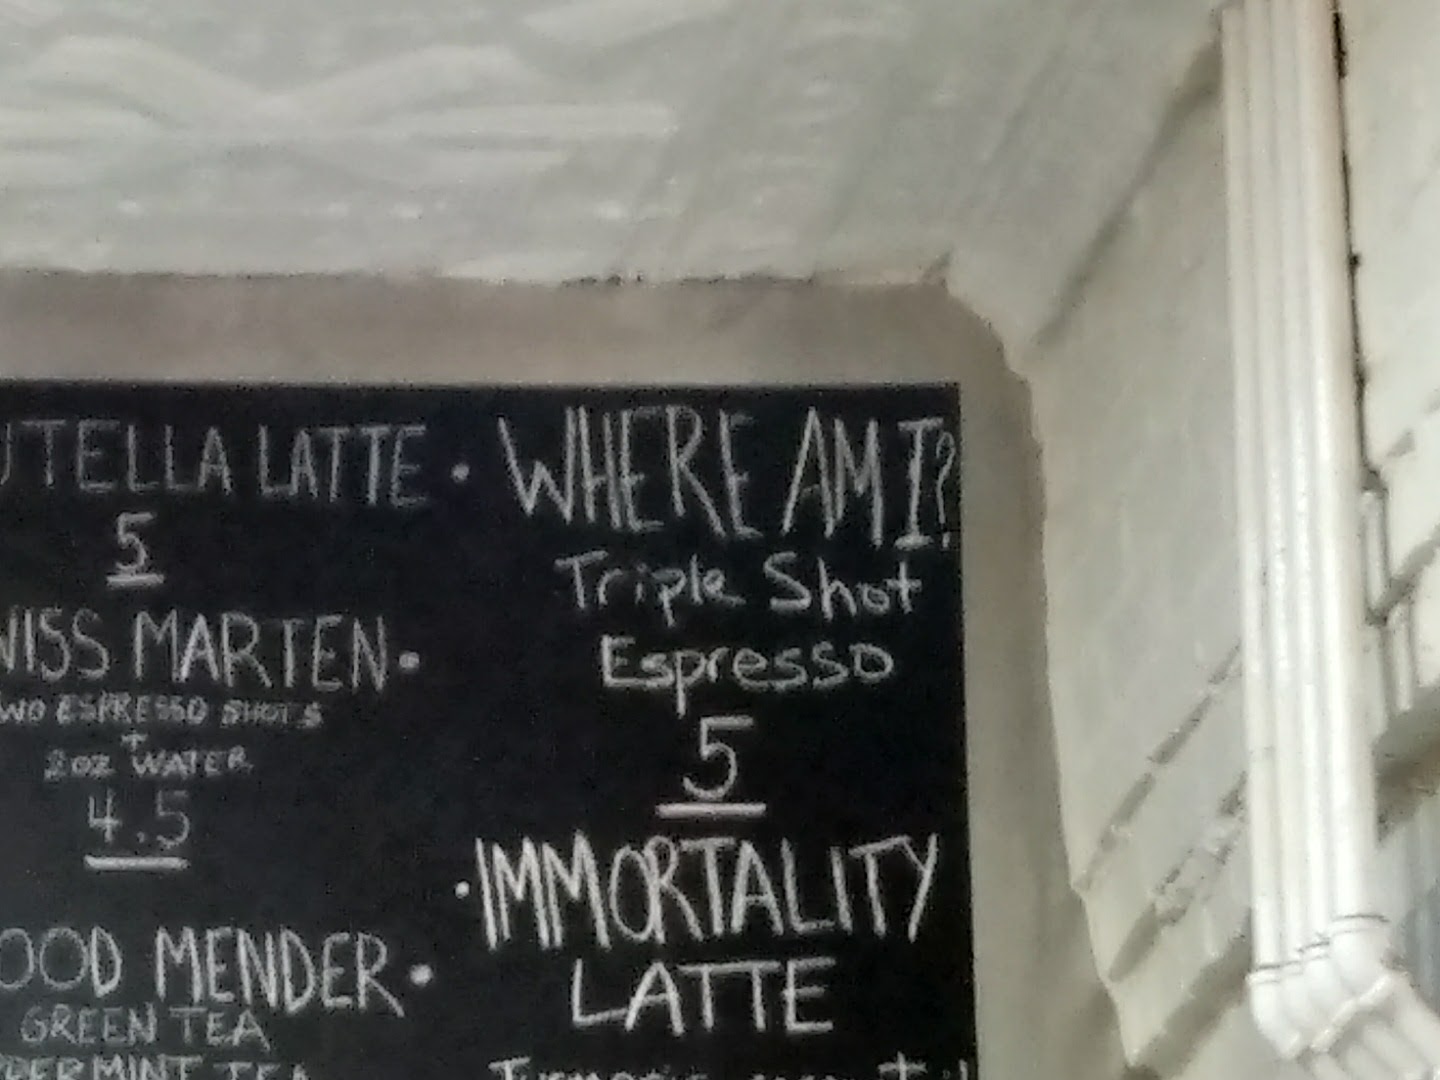 UTELLA LATTE •
5
WISS MARTEN •
WO ESPRESSO SHOTS
+
2oz WATER
4.5
OOD MENDER •
GREEN TEA
PPERMINT TEA
WHERE AM I?
Triple Shot
Espresso
5
• IMMORTALITY
LATTE